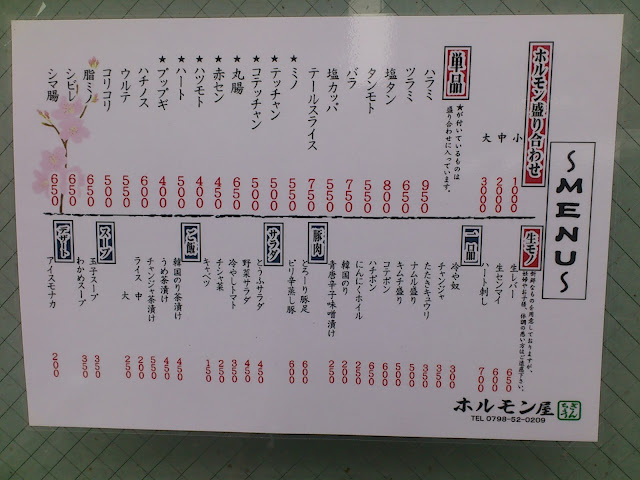 ~MENU~
ホルモン盛り合わせ
小 1000
中 2000
大 3000
単品
★が付いているものは
盛り合わせに入っています。
ハラミ 950
ツラミ 650
塩タン 800
タンモト 550
バラ 750
塩カッパ 550
テールスライス 750
★ミノ 550
★テッチャン 500
★コテッチャン 500
★丸腸 650
★赤セン 450
★ハツモト 400
★ハート 500
★プップギ 400
ハチノス 600
ウルテ 500
コリコリ 500
脂ミノ 650
シビレ 650
シマ腸 650
生モノ
新鮮なものを用意しておりますが、
妊婦やお子様、体調の悪い方はご遠慮下さい。
生レバー 650
生センマイ 600
ハート刺し 700
一品
冷や奴 300
チャンジャ 350
たたきキュウリ 350
ナムル盛り 500
キムチ盛り 500
コテポン 600
ハチポン 650
にんにくホイル 250
韓国のり 100
青唐辛子味噌漬け 200
豚肉
とろーり豚足 600
ピリ辛蒸し豚 600
サラダ
とうふサラダ 450
野菜サラダ 450
冷やしトマト 350
チシャ菜 250
キャベツ 150
ご飯
韓国のり茶漬け 450
うめ茶漬け 450
チャンジャ茶漬け 550
ライス 中 200
大 250
スープ
玉子スープ 350
わかめスープ 350
デザート
アイスモナカ 200
ホルモン屋
TEL 0798-52-0209